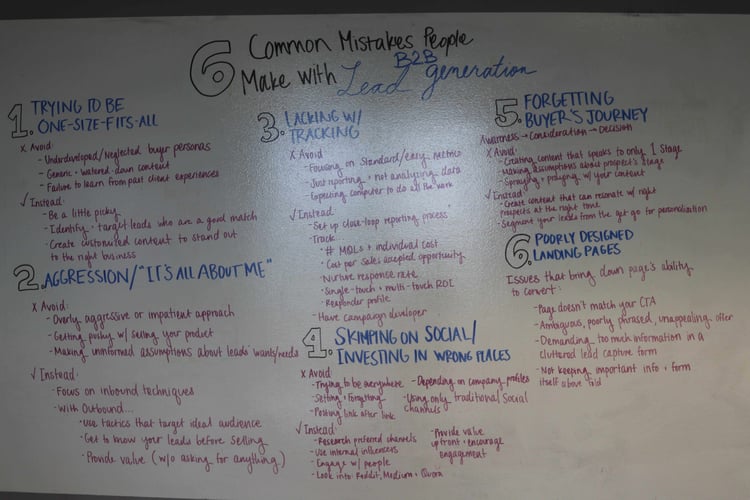 6 Common Mistakes People
Make with B2B Lead generation
1. TRYING TO BE
ONE-SIZE-FITS-ALL
X Avoid
- Underdeveloped/Neglected buyer personas
- Generic + watered down content
- Failure to learn from past client experiences
√ Instead:
- Be a little picky
- Identify + target leads who are a good match
- Create customized content to stand out
to the right business
2. AGGRESSION/"IT'S ALL ABOUT ME"
X Avoid:
- Overly aggressive or impatient approach
- Getting pushy w/ selling your product
- Making uninformed assumptions about leads' wants/needs
√ Instead:
- Focus on inbound techniques
- With Outbound...
- Use tactics that target ideal audience
- Get to know your leads before selling
- Provide value (w/o asking for anything)
3. LACKING W/
TRACKING
X Avoid
- Focusing on standard/easy metrics
- Just reporting + not analyzing data
- Expecting computer to do all the work
√ Instead:
- Set up close-loop reporting process
- Track
- # MQLs + individual cost
- Cost per sales accepted opportunity
- Nurture response rate
- Single-touch + multi-touch ROI
- Responder profile
- Have campaign developer
4. SKIMPING ON SOCIAL/
INVESTING IN WRONG PLACES
X Avoid
- Trying to be everywhere
- Setting + forgetting
- Posting link after link
- Depending on company profiles
- Using only traditional social
channels
√ Instead:
- Research preferred channels
- Use internal influencers
- Engage w/ people
- Look into Reddit, Medium + Quora
- Provide value
upfront + encourage
engagement
5. FORGETTING
BUYER'S JOURNEY
Awareness → Consideration → Decision
X Avoid:
- Creating content that speaks to only 1 stage
- Making assumptions about prospect's stage
- Spraying + praying w/ your content
√ Instead:
- Create content that can resonate w/ right
prospects at the right time
- Segment your leads from the get go for personalization
6. POORLY DESIGNED
LANDING PAGES
Issues that bring down page's ability
to convert:
- Page doesn't match your CTA
- Ambiguous, poorly phrased, unappealing offer
- Demanding too much information in a
cluttered lead capture form
- Not keeping important info + form
itself above fold